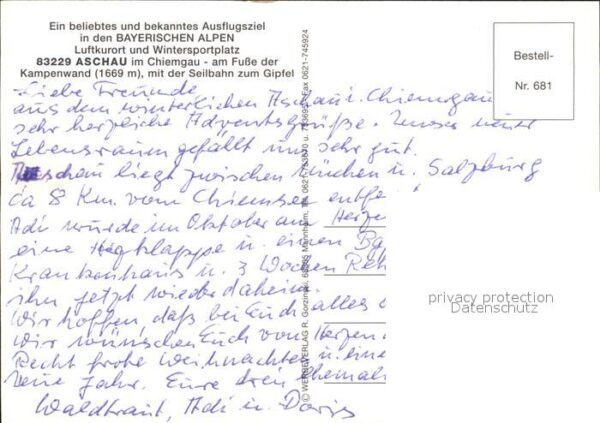 Ein beliebtes und bekanntes Ausflugsziel
in den BAYERISCHEN ALPEN
Luftkurort und Wintersportplatz
83229 ASCHAU im Chiemgau - am Fuße der
Kampenwand (1669 m), mit der Seilbahn zum Gipfel
Bestell-
Nr. 681
Liebe Freunde
aus dem winterlichen Aschau i. Chiemgau
sehr herzliche Adventsgrüße. Unser neuer
Lebensraum gefällt uns sehr gut.
Aschau liegt zwischen München u. Salzburg
ca 8 Km. vom Chiemsee
Adi wurde im Oktober am Herzen
eine u. einen
Krankenhaus u. 3 Wochen
ihn jetzt wieder daheim.
Wir hoffen, daß bei Euch alles
Wir wünschen Euch von Herzen
Recht frohe Weihnachten u. ein
neue Jahr. Eure drei
Waldtraut, Adi u. Doris
© WERBEVERLAG R. Gorzinski, Mannheim, Tel. Fax 0621-745924
privacy protection
Datenschutz